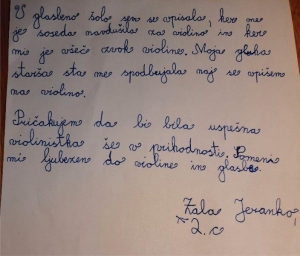 V glasbeno šolo sem se vpisala, ker me
je soseda navdušila za violino in ker
mi je všeč zvok violine. Moja
starša sta me spodbujala naj se vpišem
na violino.
Pričakujem da bi bila uspešna
violinistka še v prihodnosti. Pomeni
mi ljubezen do violine in glasbe.
Zala Jeranko,
2. c